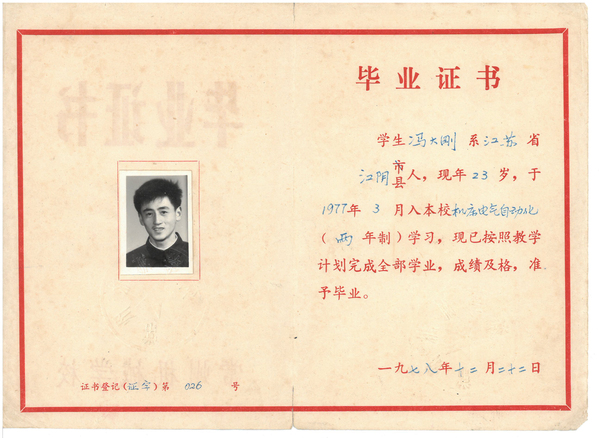 毕业证书
学生冯大刚系江苏省
江阴市县人，现年23岁，于
1977年3月入本校机床电气自动化
（两年制）学习，现已按照教学
计划完成全部学业，成绩及格，准
予毕业。
一九七八年十二月二十二日
证书登记（证字）第026号